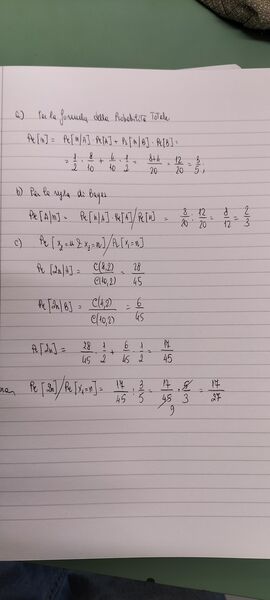 a) Per la formula della Probabilità Totale
Pr[n] = Pr[n|A]·Pr[A] + Pr[n|B]·Pr[B] =
= 1/2 · 8/10 + 4/10 · 1/2 = 8+4/20 = 12/20 = 3/5;
b) Per la regola di Bayes
Pr[A|n] = Pr[n|A]·Pr[A]/Pr[n] = 8/20 : 12/20 = 8/12 = 2/3
c) Pr[x₂=n & x₁=n]/Pr[x₁=n]
Pr[2n|A] = C(8,2)/C(10,2) = 28/45
Pr[2n|B] = C(4,2)/C(10,2) = 6/45
Pr[2n] = 28/45 · 1/2 + 6/45 · 1/2 = 17/45
Pr[2n]/Pr[x₁=n] = 17/45 : 3/5 = 17/45 · 5/3 = 17/27
9